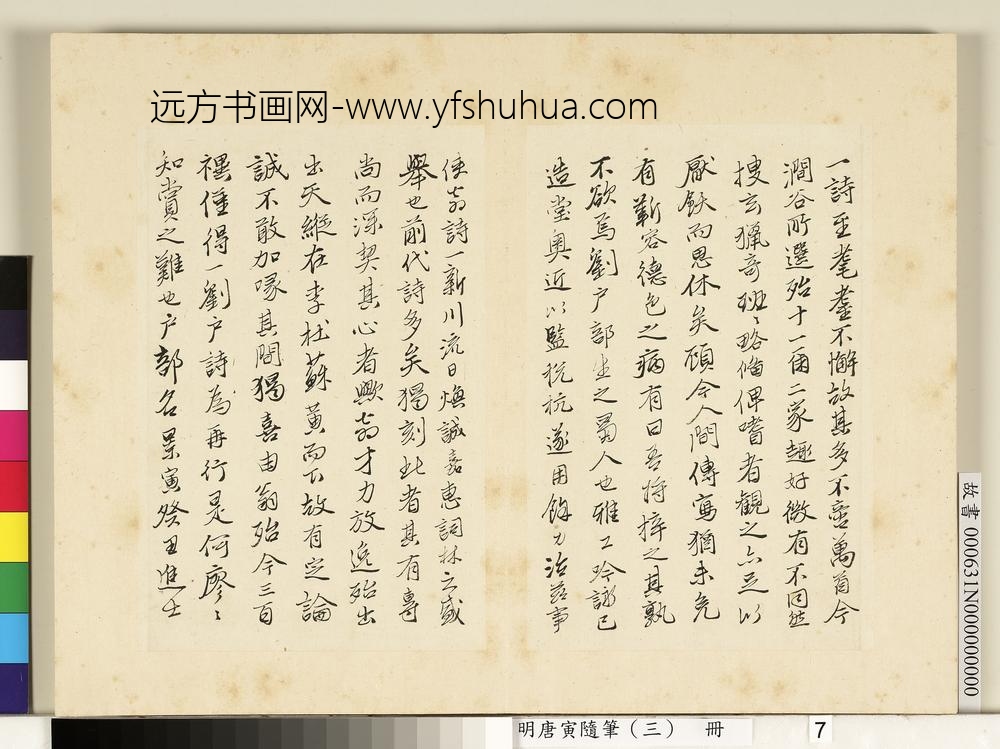 远方书画网-www.yfshuhua.com
一詩至耄耋不懈故其多不啻萬首今
澗谷所選殆十一爾二家趣好微有不同然
搜玄獵奇班〻略備俾嗜者觀之亦足以
厭飫而思休矣顧今人間傳寫猶未免
有靳容德色之病有曰吾将梓之其孰
不欲焉劉户部生之昜人也雅工吟詠已
造堂奥近以監税杭遂用餘力治茲事
使翁詩一新川流日煥誠嘉惠詞林之盛
舉也前代詩多矣獨刻此者其有專
尚而深契其心者歟翁才力放逸殆出
出天縱在李杜蘇黄而下故有定論
誠不敢加喙其間獨喜由翁殆今三百
禩僅得一劉户詩為再行是何廖〻
知賞之難也户部名杲寅癸丑進士
故書 000631N000000000
明唐寅隨筆（三） 冊 7